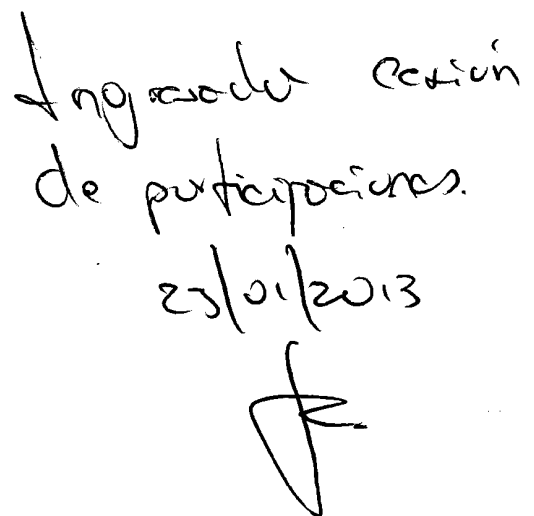 Ingresada cesión
de participaciones.
23/01/2013